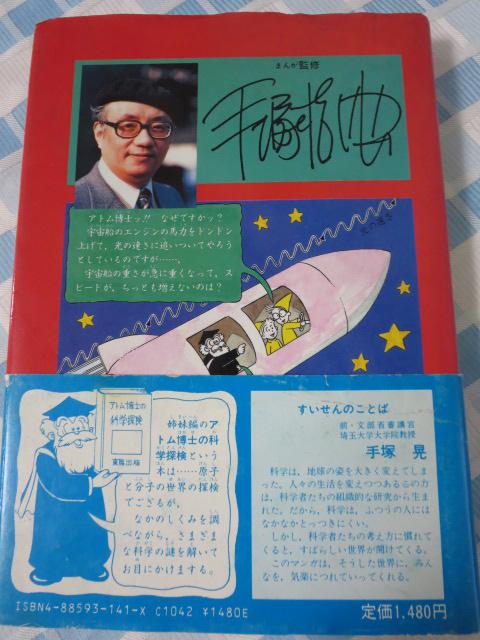 まんが監修
手塚治虫
アトム博士ッ!! なぜですかッ?
宇宙船のエンジンの馬力をドンドン
上げて、光の速さに追いついてやろう
としているのですが……、
宇宙船の重さが急に重くなって、ス
ピードが、ちっとも増えないのは?
光の速さ
アトム博士の
科学探検
東陽出版
姉妹編のア
トム博士の科
学探検という
本は……原子
と分子の世界の探検
でござるが、
なかのしくみを調
べながら、さまざま
な科学の謎を解いて
お目にかけまする。
すいせんのことば
前・文部省審議官
埼玉大学大学院教授
手塚 晃
科学は、地球の姿を大きく変えてしまっ
た。人々の生活を変えつつあるこの力
は、科学者たちの組織的な研究から生ま
れた。だから、科学は、ふつうの人には
なかなかとっつきにくい。
しかし、科学者たちの考え方に慣れて
くると、すばらしい世界が開けてくる。
このマンガは、そうした世界に、みん
なを、気楽につれていってくれる。
ISBN4-88593-141-X C1042 ¥1480E
定価1,480円